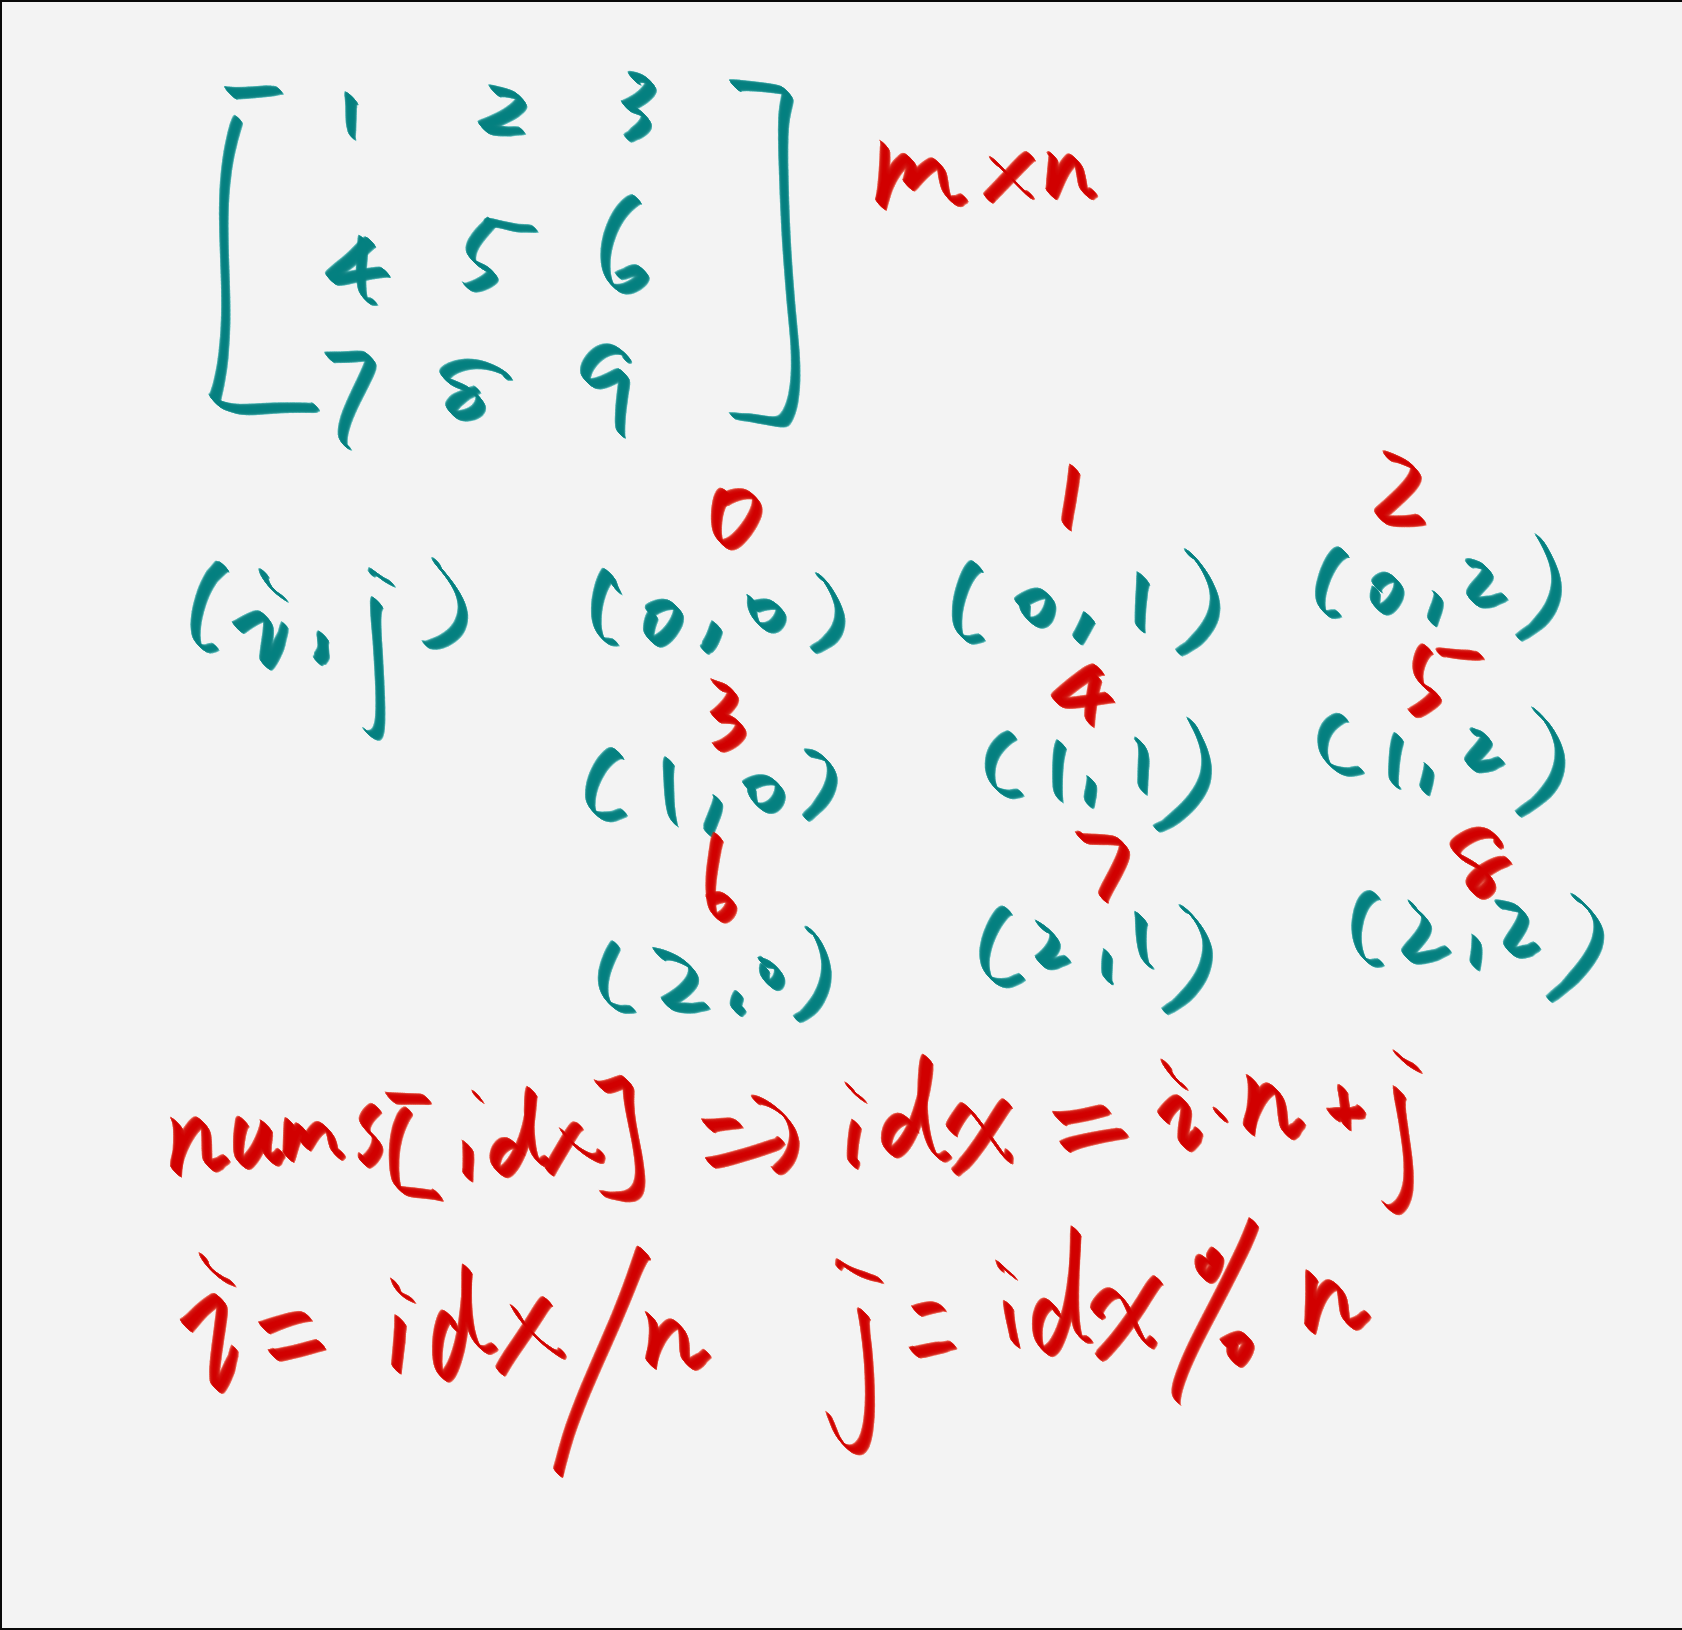 1 2 3
m×n
4 5 6
7 8 9
0 1 2
(i,j) (0,0) (0,1) (0,2)
3 4 5
(1,0) (1,1) (1,2)
6 7 8
(2,0) (2,1) (2,2)
nums[idx] ⇒ idx = i·n+j
i = idx/n j = idx%n